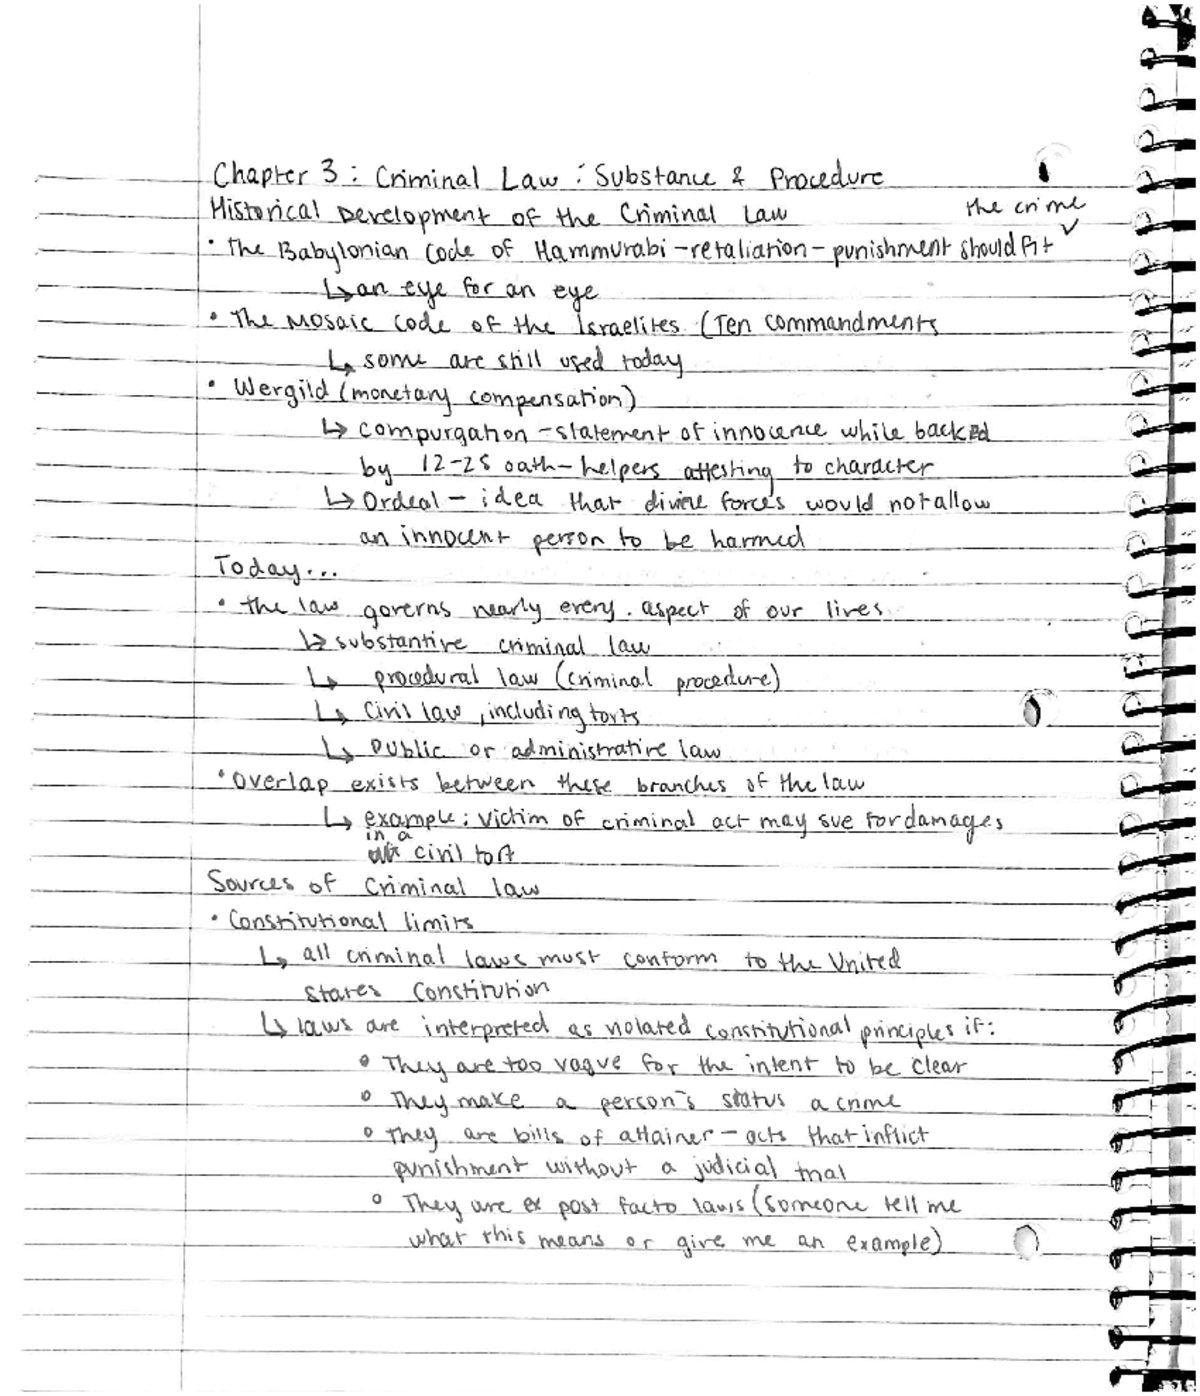 Chapter 3: Criminal Law: Substance & Procedure
Historical Development of the Criminal Law
the crime
• The Babylonian Code of Hammurabi - retaliation - punishment should fit ✓
↳ an eye for an eye
• The Mosaic Code of the Israelites (Ten Commandments
↳ some are still used today
• Wergild (monetary compensation)
↳ compurgation - statement of innocence while backed
by 12-25 oath-helpers attesting to character
↳ Ordeal - idea that divine forces would not allow
an innocent person to be harmed
Today...
• the law governs nearly every aspect of our lives
↳ substantive criminal law
↳ procedural law (criminal procedure)
↳ Civil law, including torts
↳ public or administrative law
• Overlap exists between these branches of the law
↳ example: victim of criminal act may sue for damages
in a
civil tort
Sources of Criminal law
• Constitutional limits
↳ all criminal laws must conform to the United
States Constitution
↳ laws are interpreted as violated constitutional principles if:
° They are too vague for the intent to be clear
° They make a person's status a crime
° They are bills of attainer - acts that inflict
punishment without a judicial trial
° They are ex post facto laws (someone tell me
what this means or give me an example)